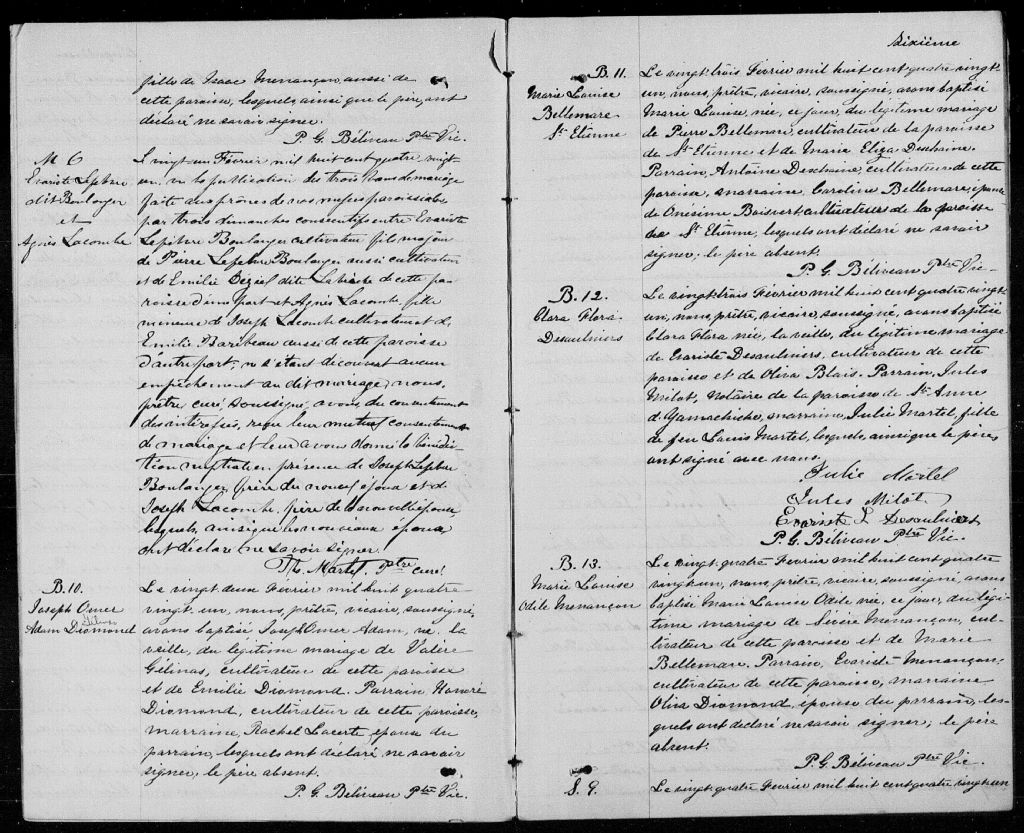 fille de Isaac Menançon, aussi de
cette paroisse, lesquels ainsi que le père, ont
déclaré ne savoir signer.
P. G. Béliveau Ptre Vic.
M 6
Evariste Lefebvre
dit Boulanger
et
Agnès Lacombe
L vingt-un Février mil huit cent quatre vingt
un, vu la publication des trois bans de mariage
faite aux prônes de nos messes paroissiales
par trois dimanches consécutifs entre Evariste
Lefebvre Boulanger cultivateur fils majeur
de Pierre Lefebvre Boulanger aussi cultivateur
et de Emilie Deziel dite Labrèche de cette pa-
roisse d'une part et Agnès Lacombe, fille
mineure de Joseph Lacombe cultivateur et d.
Emilie Baribeau aussi de cette paroisse
d'autre part; ne s'étant découvert aucun
empêchement au dit mariage; nous,
prêtre, curé, soussigné, avons, du consentement
des intéressés, reçu leur mutuel consentement
de mariage et leur avons donné la bénédic-
tion nuptiale en présence de Joseph Lefebvre
Boulanger, frère du nouvel époux et d.
Joseph Lacombe, père de la nouvelle épouse,
lesquels, ainsi que les nouveaux époux,
ont déclaré ne savoir signer.
Ptre curé
B. 10.
Joseph Omer
Adam Gélinas
Diomond
Le vingt deux Février mil huit cent quatre
vingt un, nous, prêtre, vicaire, soussigné,
avons baptisé Joseph Omer Adam, né, la
veille, du légitime mariage de Valère
Gélinas, cultivateur de cette paroisse
et de Emilie Diamond. Parrain Honoré
Diamond, cultivateur de cette paroisse,
marraine, Rachel Lacerte, épouse du
parrain, lesquels ont déclaré, ne savoir
signer, le père absent.
P. G. Béliveau Ptre Vic.
Sixième
B. 11.
Marie Louise
Bellemare
St. Etienne
Le vingt-trois Février mil huit cent quatre vingt
un, nous, prêtre, vicaire, soussigné, avons baptisé
Marie Louise, née, ce jour, du légitime mariage
de Pierre Bellemare, cultivateur de la paroisse
de St. Etienne et de Marie Eliza Duchaine.
Parrain, Antoine Duchaine, cultivateur de cette
paroisse, marraine, Caroline Bellemare, épouse
de Onésime Boisvert cultivateurs de la paroisse
de St. Etienne, lesquels ont déclaré ne savoir
signer; le père absent.
P. G. Béliveau Ptre Vic.
B. 12.
Clara Flora
Desaulniers
Le vingt-trois Février mil huit cent quatre vingt
un, nous, prêtre, vicaire, soussigné, avons baptisé
Clara Flora née, la veille, du légitime mariage
de Evariste Desaulniers, cultivateur de cette
paroisse et de Oliva Blais. Parrain, Jules
Milot, notaire de la paroisse de St. Anne
d. Yamachiche, marraine, Julie Martel, fille
de feu Louis Martel, lesquels, ainsi que le père,
ont signé avec nous.
Julie Martel
Jules Milot
Evariste L. Desaulniers
P. G. Béliveau Ptre Vic.
B. 13.
Marie Louise
Odile Menançon
Le vingt-quatre Février mil huit cent quatre
vingt un, nous, prêtre, vicaire, soussigné, avons
baptisé Marie Louise Odile née, ce jour, du légi-
time mariage de Sévère Menançon, cul-
tivateur de cette paroisse et de Marie
Bellemare. Parrain, Evariste Menançon,
cultivateur de cette paroisse, marraine
Oliva Diamond, épouse du parrain, les-
quels ont déclaré ne savoir signer; le père
absent.
P. G. Béliveau Ptre Vic.
S. 9.
Le vingt-quatre Février mil huit cent quatre vingt un